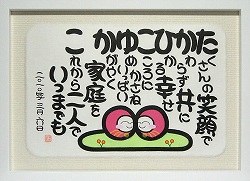 たくさんの笑顔で
かわらず共に
ひから幸せ
こころに
ゆめかさね
かがやく
家庭を
これから二人で
いつまでも
二〇一〇年三月六日